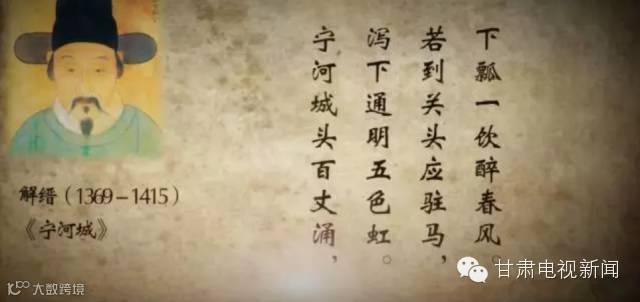 宁河城头百丈涌，
泻下通明五色虹。
若到关头应驻马，
下瓢一饮醉春风。
解缙（1369－1415）
《宁河城》
甘肃电视新闻
大数跨境